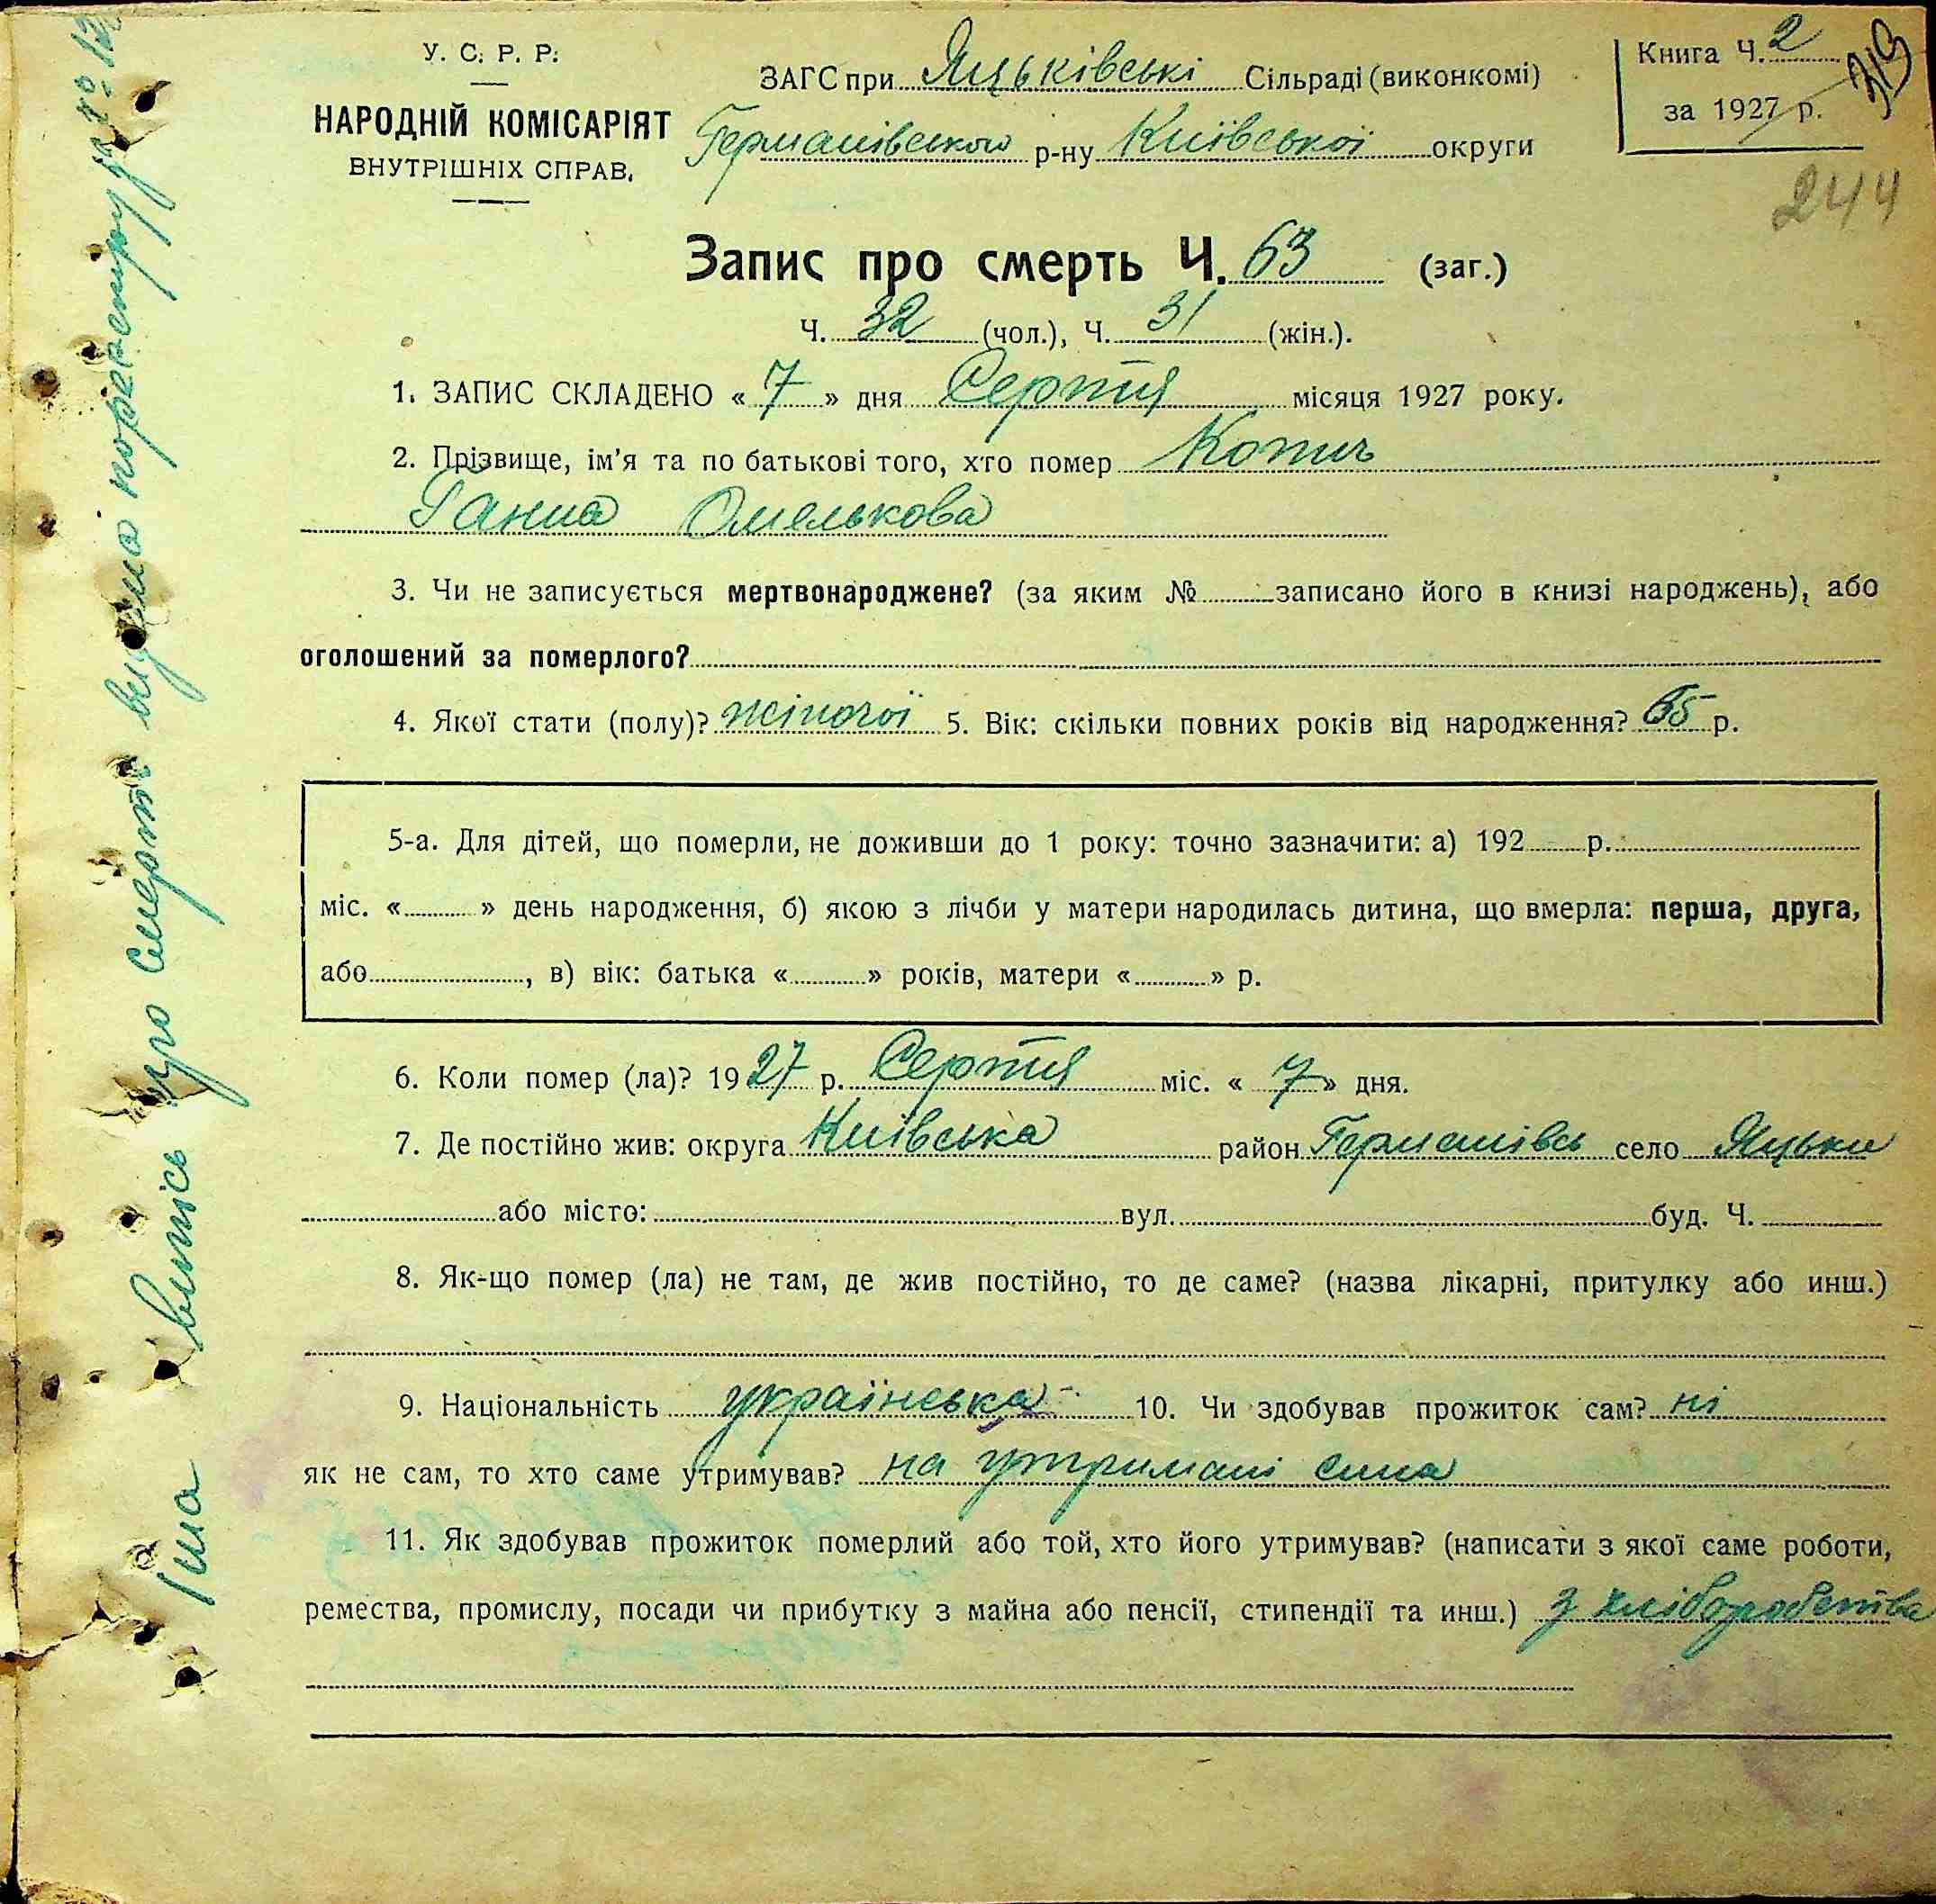 У. С. Р. Р.
НАРОДНІЙ КОМІСАРІЯТ
ВНУТРІШНІХ СПРАВ.
ЗАГС при Яцьківські Сільраді (виконкомі)
Германівського р-ну Київської округи
Книга Ч. 2
за 1927 р.
319
244
Запис про смерть Ч. 63 (заг.)
Ч. 32 (чол.), Ч. 31 (жін.).
1. ЗАПИС СКЛАДЕНО « 7 » дня Серпня місяця 1927 року.
2. Прізвище, ім'я та по батькові того, хто помер
Ганна Омелькова
3. Чи не записується мертвонароджене? (за яким № записано його в книзі народжень), або
оголошений за померлого?
4. Якої стати (полу)? жіночої 5. Вік: скільки повних років від народження? 65 р.
5-а. Для дітей, що померли, не доживши до 1 року: точно зазначити: а) 192 р.
міс. « » день народження, б) якою з лічби у матери народилась дитина, що вмерла: перша, друга,
або , в) вік: батька « » років, матери « » р.
6. Коли помер (ла)? 1927 р. Серпня міс. « 7 » дня.
7. Де постійно жив: округа Київська район Германівсь село Яцьки
або місто: вул. буд. Ч.
8. Як-що помер (ла) не там, де жив постійно, то де саме? (назва лікарні, притулку або инш.)
9. Національність українська 10. Чи здобував прожиток сам? ні
як не сам, то хто саме утримував? на утримані сина
11. Як здобував прожиток померлий або той, хто його утримував? (написати з якої саме роботи,
ремества, промислу, посади чи прибутку з майна або пенсії, стипендії та инш.) з хліборобства
випись про смерть видана по реєстру за №